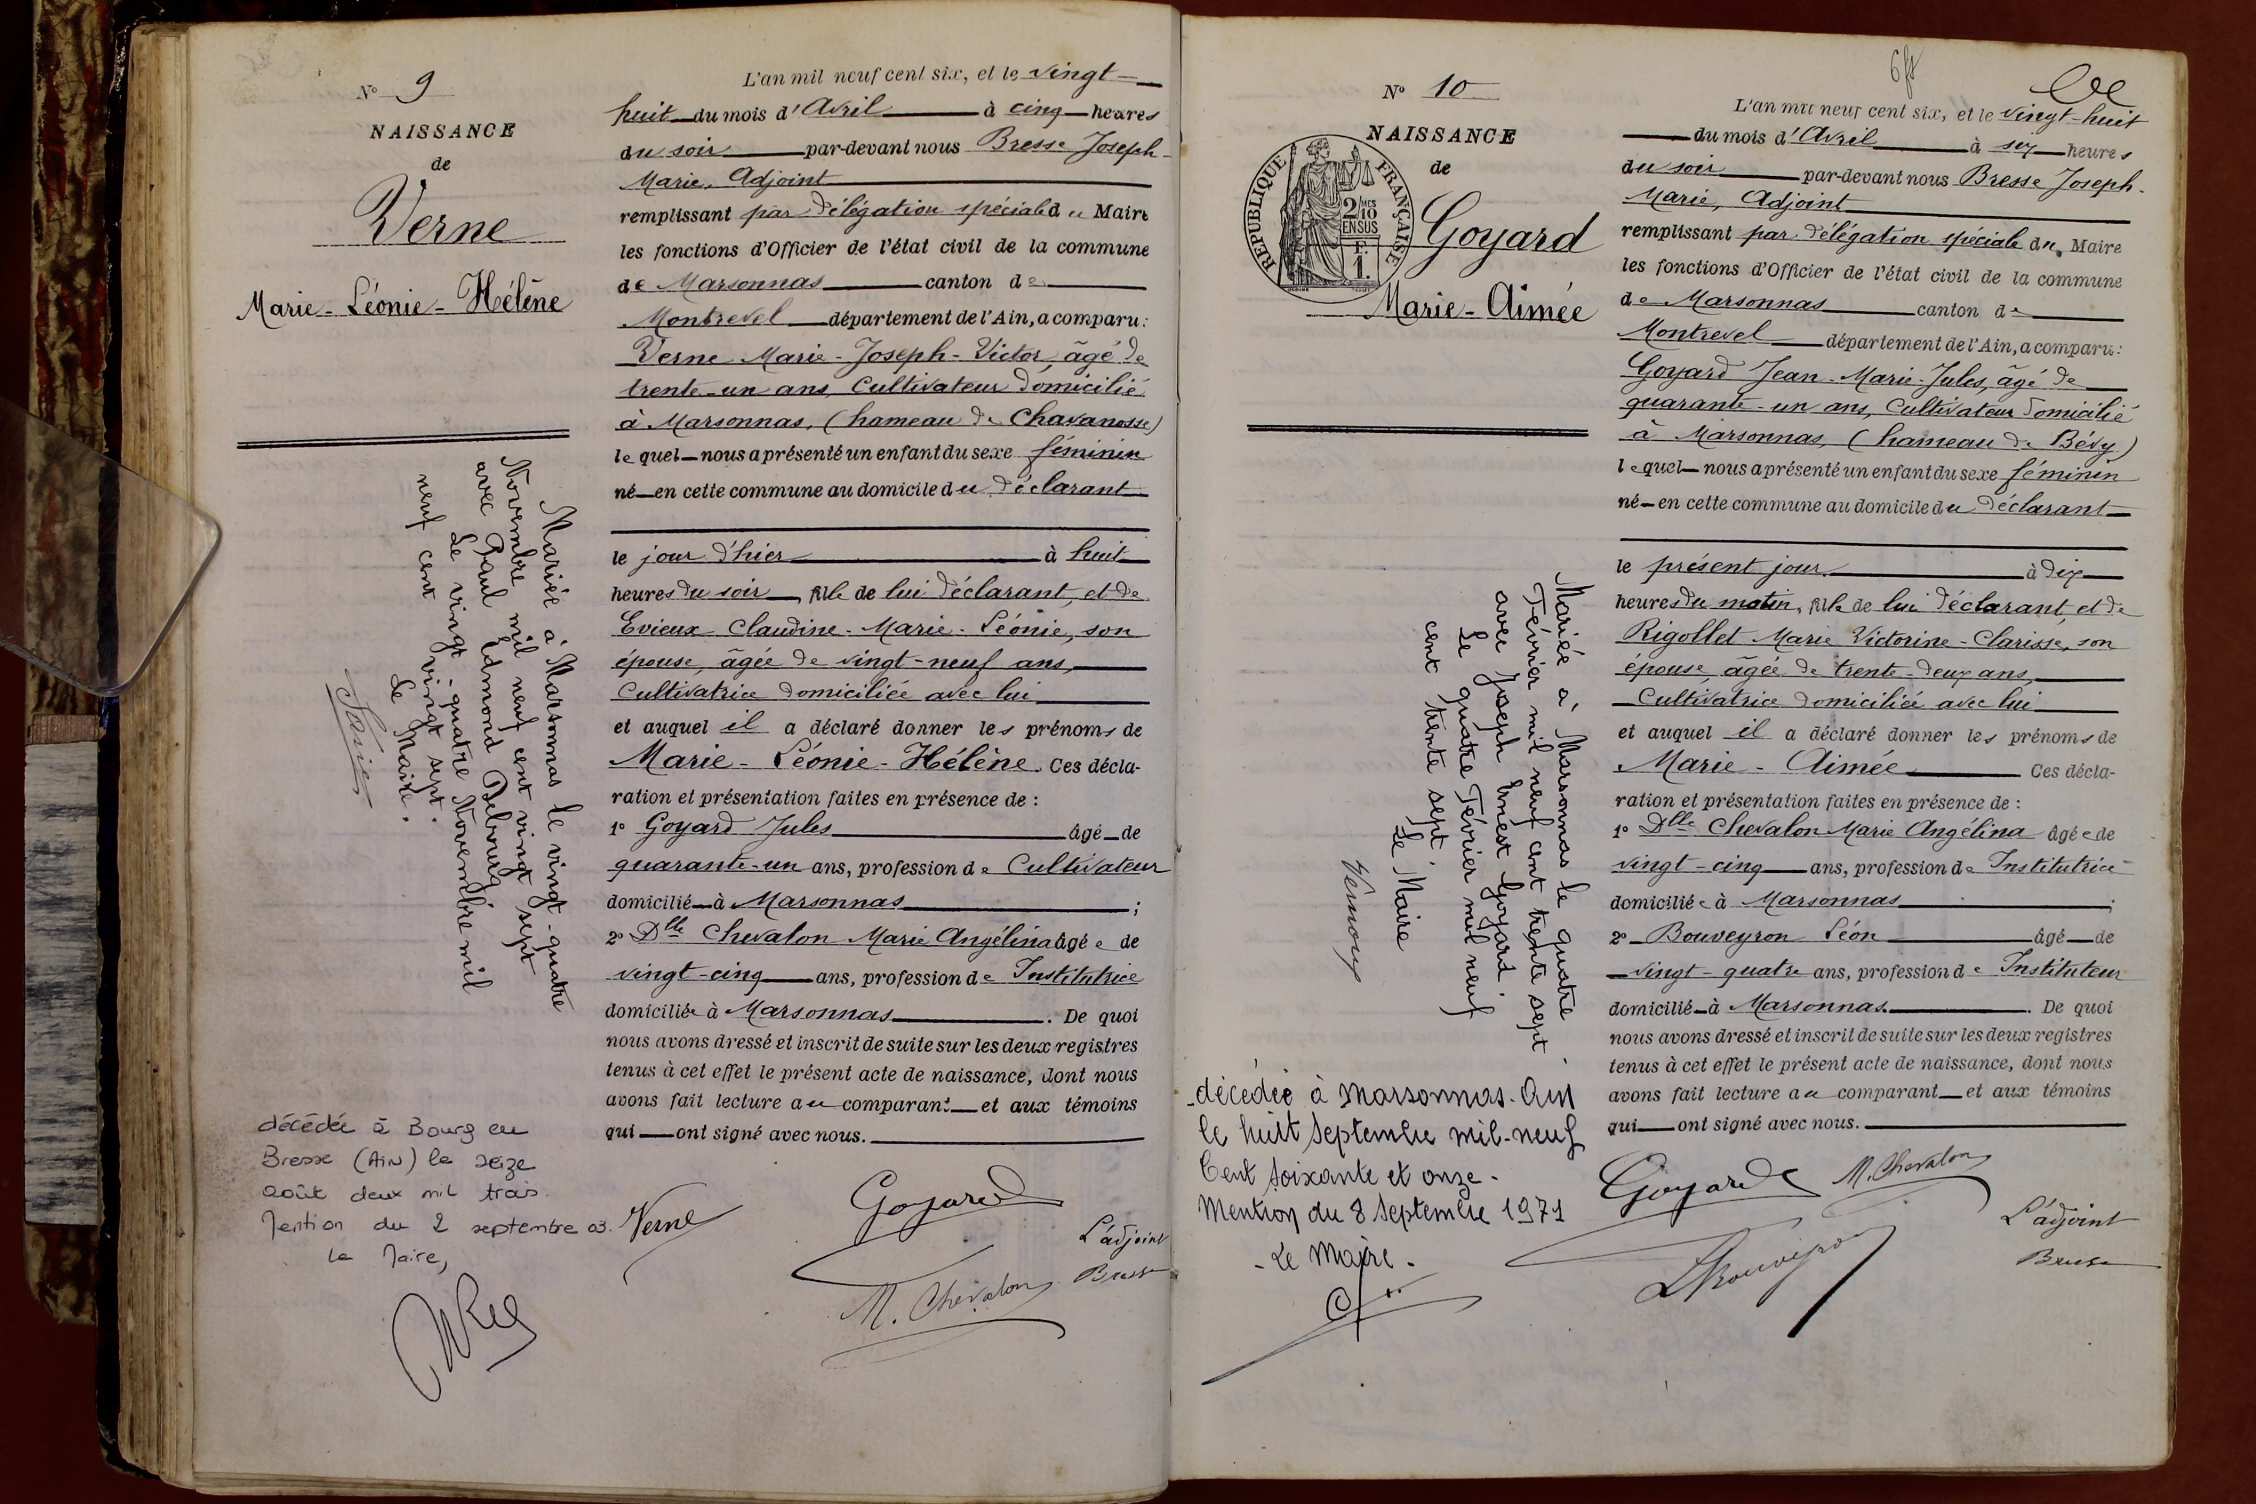 N° 9
NAISSANCE
de
Verne
Marie-Léonie-Hélène
Mariée à Marsonnas le vingt-quatre
Novembre mil neuf cent vingt sept
avec Paul Edmond Debourg
Le vingt-quatre Novembre mil
neuf cent vingt sept.
Le Maire.
décédée à Bourg en
Bresse (Ain) le seize
août deux mil trois.
Mention du 2 septembre 03.
Le Maire,
L'an mil neuf cent six, et le vingt-
huit du mois d'Avril à cinq heures
du soir par-devant nous Bresse Joseph-
Marie, Adjoint
remplissant par délégation spéciale du Maire
les fonctions d'Officier de l'état civil de la commune
de Marsonnas canton de
Montrevel département de l'Ain, a comparu:
Verne Marie-Joseph-Victor, âgé de
trente-un ans, Cultivateur domicilié
à Marsonnas, (hameau de Chavanosse)
lequel nous a présenté un enfant du sexe féminin
né en cette commune au domicile du déclarant
le jour d'hier à huit
heures du soir, fille de lui déclarant, et de
Evieux Claudine-Marie-Léonie, son
épouse, âgée de vingt-neuf ans,
Cultivatrice domiciliée avec lui
et auquel il a déclaré donner les prénoms de
Marie-Léonie-Hélène. Ces décla-
ration et présentation faites en présence de :
1° Goyard Jules âgé de
quarante-un ans, profession de Cultivateur
domicilié à Marsonnas ;
2° Dlle Chevalon Marie Angélina âgée de
vingt-cinq ans, profession de Institutrice
domiciliée à Marsonnas. De quoi
nous avons dressé et inscrit de suite sur les deux registres
tenus à cet effet le présent acte de naissance, dont nous
avons fait lecture au comparant et aux témoins
qui ont signé avec nous.
Verne
Goyard
L'adjoint
Bresse
M. Chevalon
N° 10
NAISSANCE
de
REPUBLIQUE FRANÇAISE
2/10
EN SUS
F.
1.
Goyard
Marie-Aimée
Mariée à Marsonnas le quatre
Février mil neuf cent trente sept
avec Joseph Ernest Goyard
Le quatre Février mil neuf
cent trente sept.
Le Maire
décédée à Marsonnas-Ain
le huit Septembre mil-neuf
Cent soixante et onze-
Mention du 8 Septembre 1971
-Le Maire.
L'an mil neuf cent six, et le vingt-huit
du mois d'Avril à six heures
du soir par-devant nous Bresse Joseph-
Marie, Adjoint
remplissant par délégation spéciale du Maire
les fonctions d'Officier de l'état civil de la commune
de Marsonnas canton de
Montrevel département de l'Ain, a comparu:
Goyard Jean-Marie-Jules, âgé de
quarante-un ans, Cultivateur domicilié
à Marsonnas, (hameau de Bévy)
lequel nous a présenté un enfant du sexe féminin
né en cette commune au domicile du déclarant
le présent jour. à dix
heures du matin, fille de lui déclarant, et de
Rigollet Marie Victorine-Clarisse, son
épouse, âgée de trente-deux ans,
Cultivatrice domiciliée avec lui
et auquel il a déclaré donner les prénoms de
Marie-Aimée Ces décla-
ration et présentation faites en présence de :
1° Dlle Chevalon Marie Angélina âgée de
vingt-cinq ans, profession de Institutrice
domiciliée à Marsonnas ;
2° Bouveyron Léon âgé de
vingt-quatre ans, profession de Instituteur
domicilié à Marsonnas. De quoi
nous avons dressé et inscrit de suite sur les deux registres
tenus à cet effet le présent acte de naissance, dont nous
avons fait lecture au comparant et aux témoins
qui ont signé avec nous.
Goyard
M. Chevalon
L'adjoint
Bresse
LBouveyron